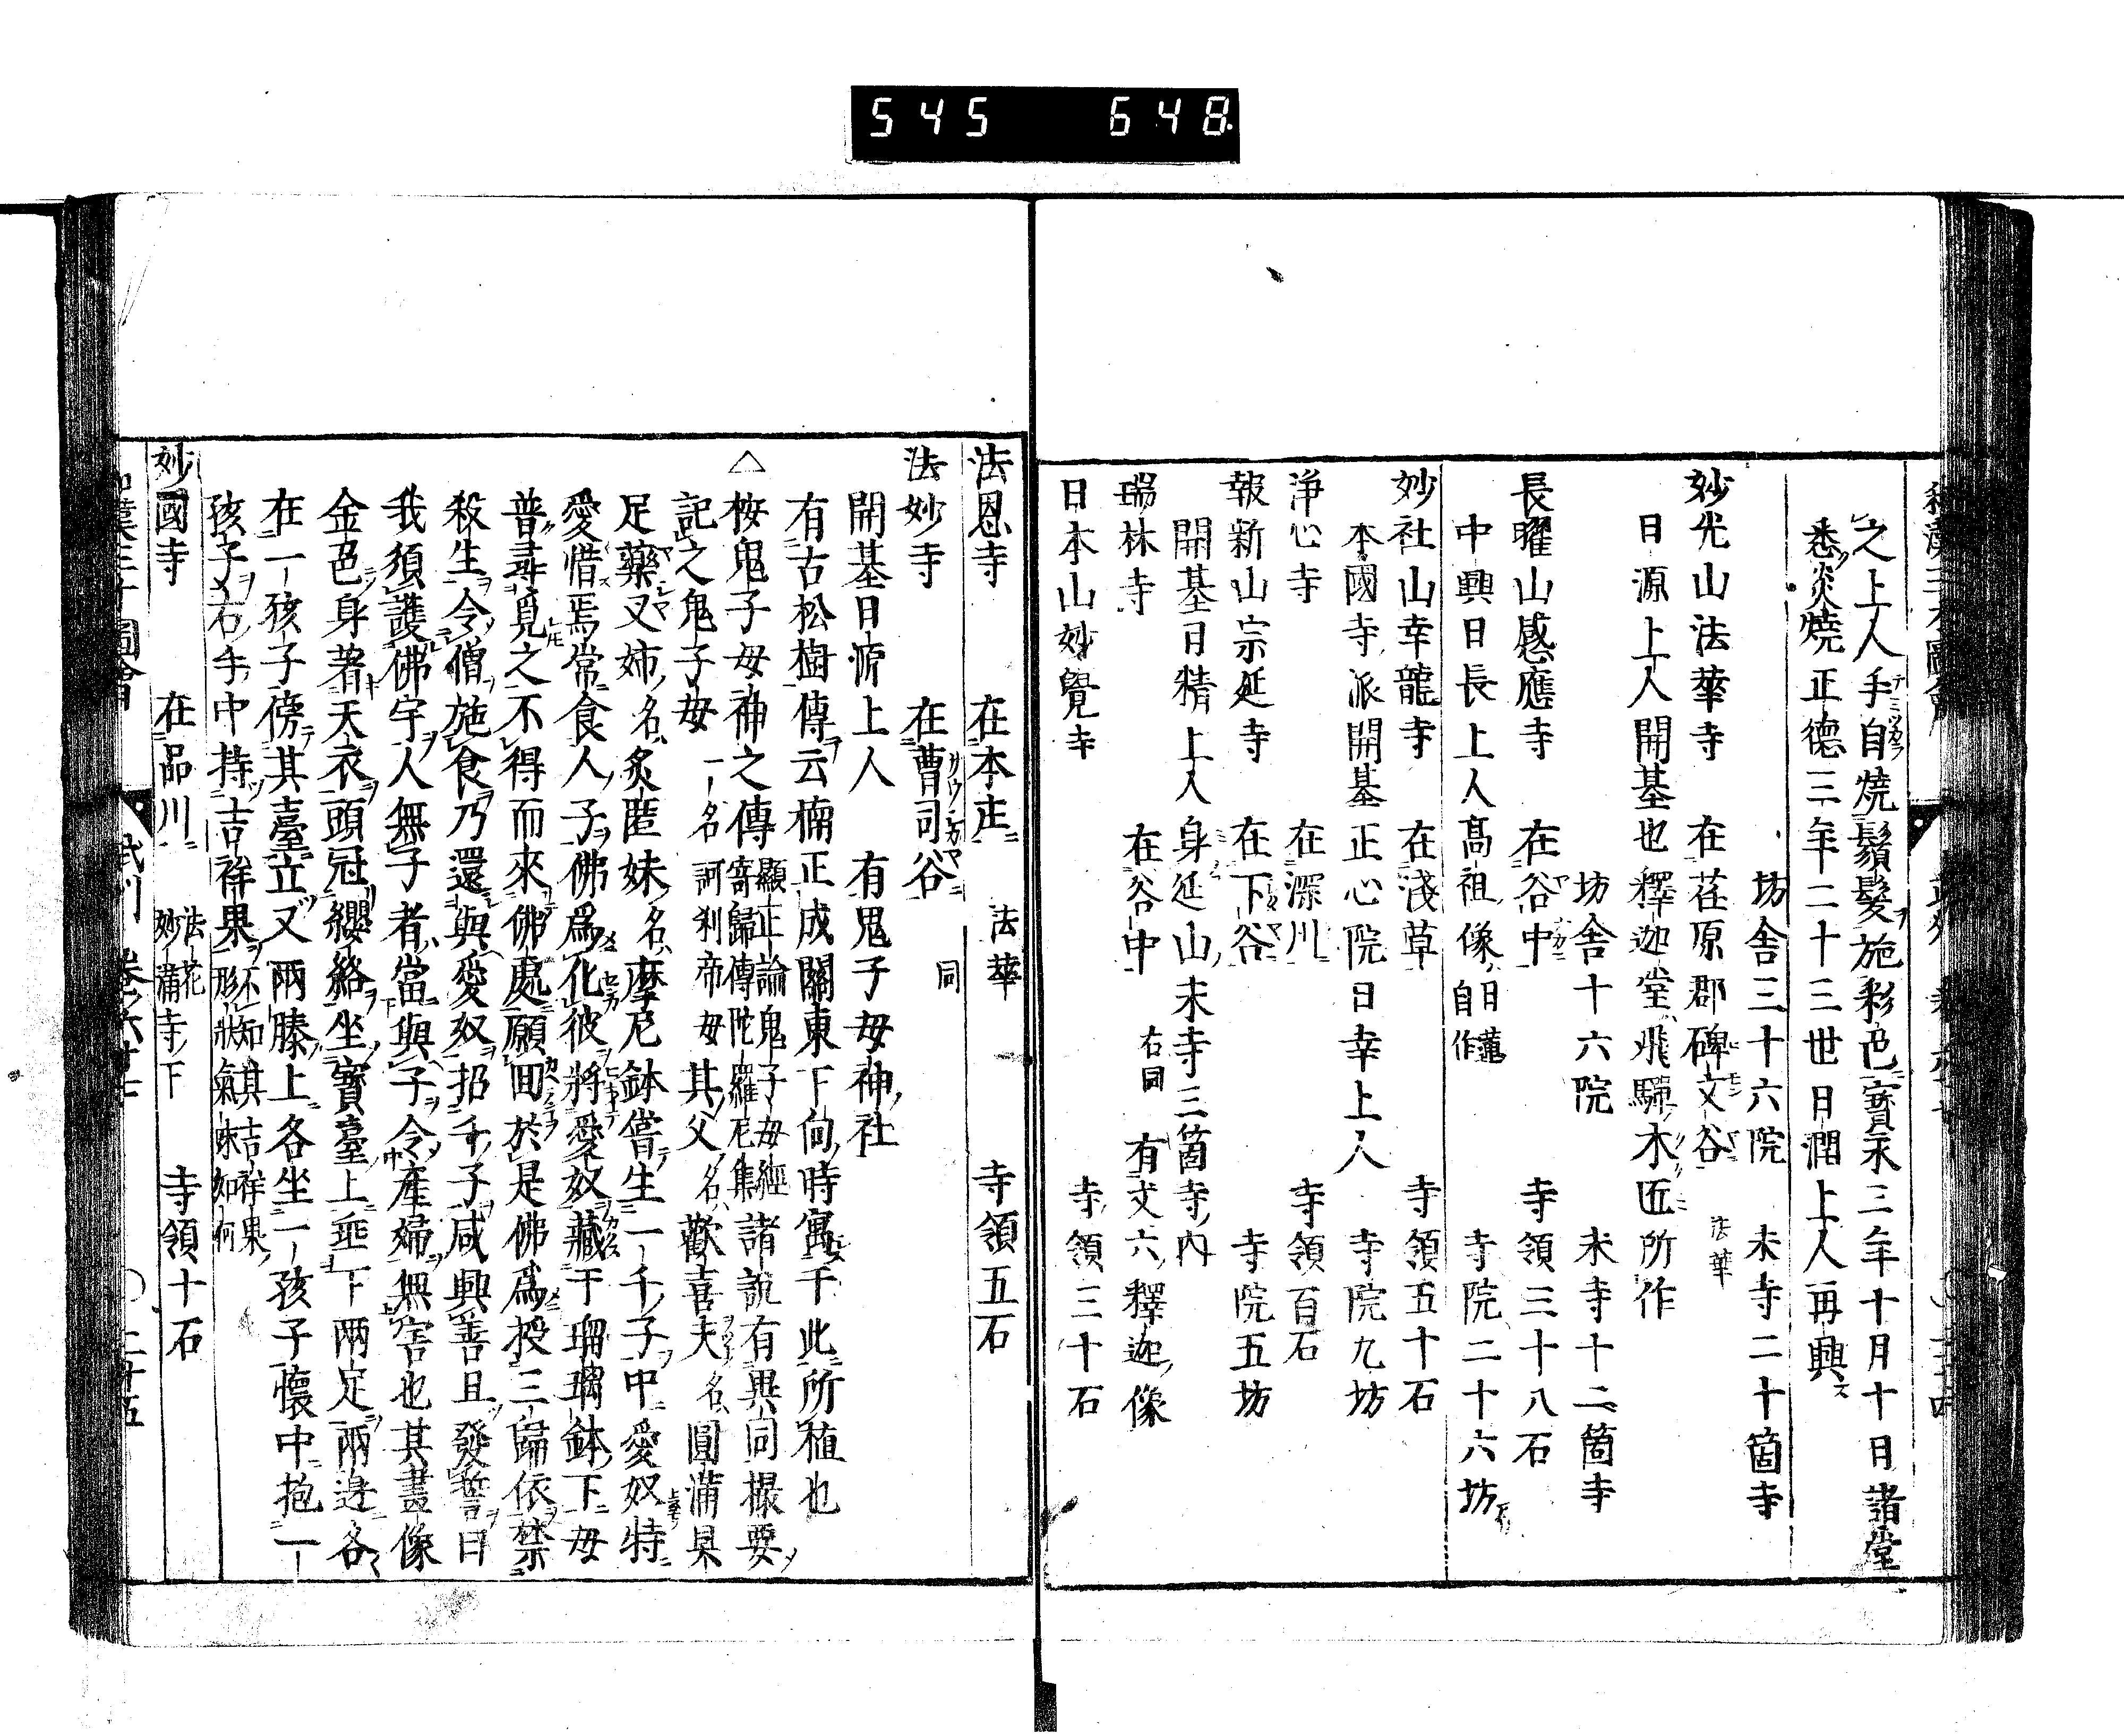 545 648
之上人手自燒鬚髮施彩色寶永三年十月十日諸堂
悉炎燒正德三年二十三世日潤上人再興
坊舍三十六院 末寺二十箇寺
妙光山法華寺 在荏原郡碑文谷 法華
日源上人開基也釋迦堂飛驒木匠所作
坊舍十六院 末寺十二箇寺
長曜山感應寺 在谷中 寺領三十八石
中興日長上人高祖像日蓮自作 寺院二十六坊
妙社山幸龍寺 在淺草 寺領五十石
本國寺派開基正心院日幸上人 寺院九坊
淨心寺 在深川 寺領百石
報新山宗延寺 在下谷 寺院五坊
開基日精上人身延山末寺三箇寺內
瑞林寺 在谷中 右同 有丈六釋迦像
日本山妙覺寺 寺領三十石
法恩寺 在本庄 法華 寺領五石
法妙寺 在曹司谷 同
開基日源上人 有鬼子母神社
有古松樹傳云楠正成關東下向時寓于此所植也
△按鬼子母神之傳顯正論鬼子母經寄歸傳陀羅尼集諸說有異同撮要
記之鬼子母一名訶利帝母其父名歡喜夫名圓滿具
足藥叉姉名炙匿妹名摩尼鉢嘗生一千子中愛奴特
愛惜焉常食人子佛爲化彼將愛奴藏于瑠璃鉢下母
普尋覓之不得而來佛處願回於是佛爲授三歸依禁
殺生令僧施食乃還與愛奴招千子咸興善且發誓曰
我須護佛宇人無子者當與子令產婦無害也其畫像
金色身著天衣頭冠纓絡坐寶臺上垂下兩足兩邊各
在一孩子傍其臺立又兩膝上各坐一孩子懷中抱一
孩子右手中持吉祥果不知其吉祥果形狀氣味如何
妙國寺 在品川 法花妙蒲寺下 寺領十石